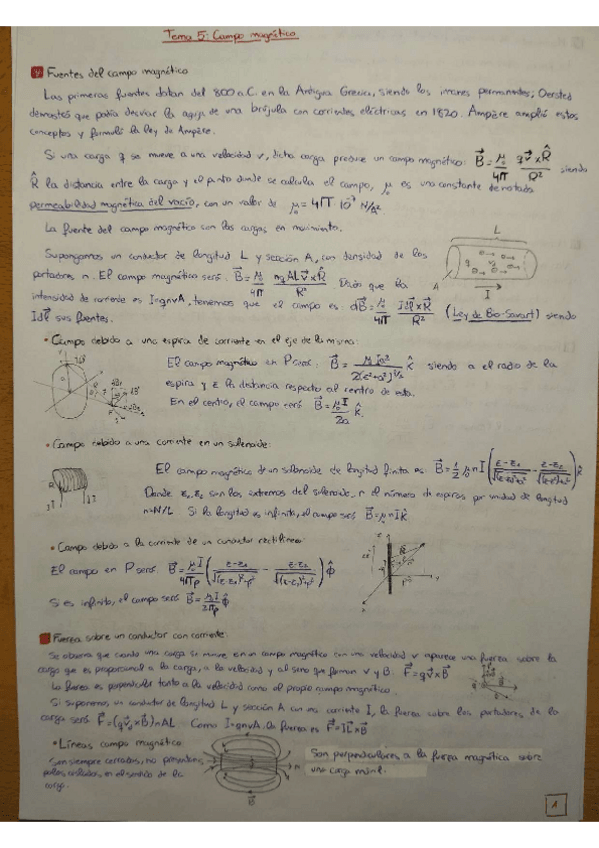 Tema 5: Campo magnético
Fuentes del campo magnético
Las primeras fuentes datan del 800 a.C. en la Antigua Grecia, siendo los imanes permanentes; Oersted
demostró que podía desviar la aguja de una brújula con corrientes eléctricas en 1820. Ampère amplió estos
conceptos y formuló la ley de Ampère.
Si una carga q se mueve a una velocidad v, dicha carga produce un campo magnético: B⃗ = μ₀/4π q v⃗ x R̂/R² siendo
R̂ la distancia entre la carga y el punto donde se calcula el campo, μ₀ es una constante denotada
permeabilidad magnética del vacío, con un valor de μ₀ = 4π 10⁻⁷ N/A².
La fuente del campo magnético son las cargas en movimiento.
Supongamos un conductor de longitud L y sección A, con densidad de los
portadores n. El campo magnético será: B⃗ = μ₀/4π nqALv⃗ x R̂/R² Dado que la
intensidad de corriente es I=qnvA, tenemos que el campo es: dB⃗ = μ₀/4π Idl⃗ x R̂/R² (Ley de Bio-Savart) siendo
Idl⃗ sus fuentes.
L
A
I
• Campo debido a una espira de corriente en el eje de la misma:
El campo magnético en P será: B⃗ = μ₀Ia²/2(z²+a²)^3/2 k̂ siendo a el radio de la
espira y z la distancia respecto al centro de esta.
En el centro, el campo será B⃗ = μ₀I/2a k̂.
• Campo debido a una corriente en un solenoide:
El campo magnético de un solenoide de longitud finita es: B⃗ = 1/2 μ₀nI (z-z₁/√(z-z₁)²+a² - z-z₂/√(z-z₂)²+a²) k̂
Donde z₁, z₂ son los extremos del solenoide, n el número de espiras por unidad de longitud
n=N/L Si la longitud es infinita, el campo será B⃗ = μ₀nI k̂
• Campo debido a la corriente de un conductor rectilíneo:
El campo en P será: B⃗ = μ₀I/4πρ (z-z₁/√(z-z₁)²+ρ² - z-z₂/√(z-z₂)²+ρ²) φ̂
Si es infinito, el campo será B⃗ = μ₀I/2πρ φ̂
Fuerza sobre un conductor con corriente:
Se observa que cuando una carga se mueve en un campo magnético con una velocidad v aparece una fuerza sobre la
carga que es proporcional a la carga, a la velocidad y al seno que forman v y B: F⃗ = qv⃗ x B⃗
La fuerza es perpendicular tanto a la velocidad como el propio campo magnético.
Si suponemos un conductor de longitud L y sección A con una corriente I, la fuerza sobre los portadores de la
carga será: F⃗ = (qv⃗ x B⃗)nAL Como I=qnvA, la fuerza es F⃗ = IL⃗ x B⃗
• Líneas campo magnético:
Son siempre cerradas, no
en el sentido de la
carga.
Son perpendiculares a la fuerza magnética sobre
una carga móvil.
1